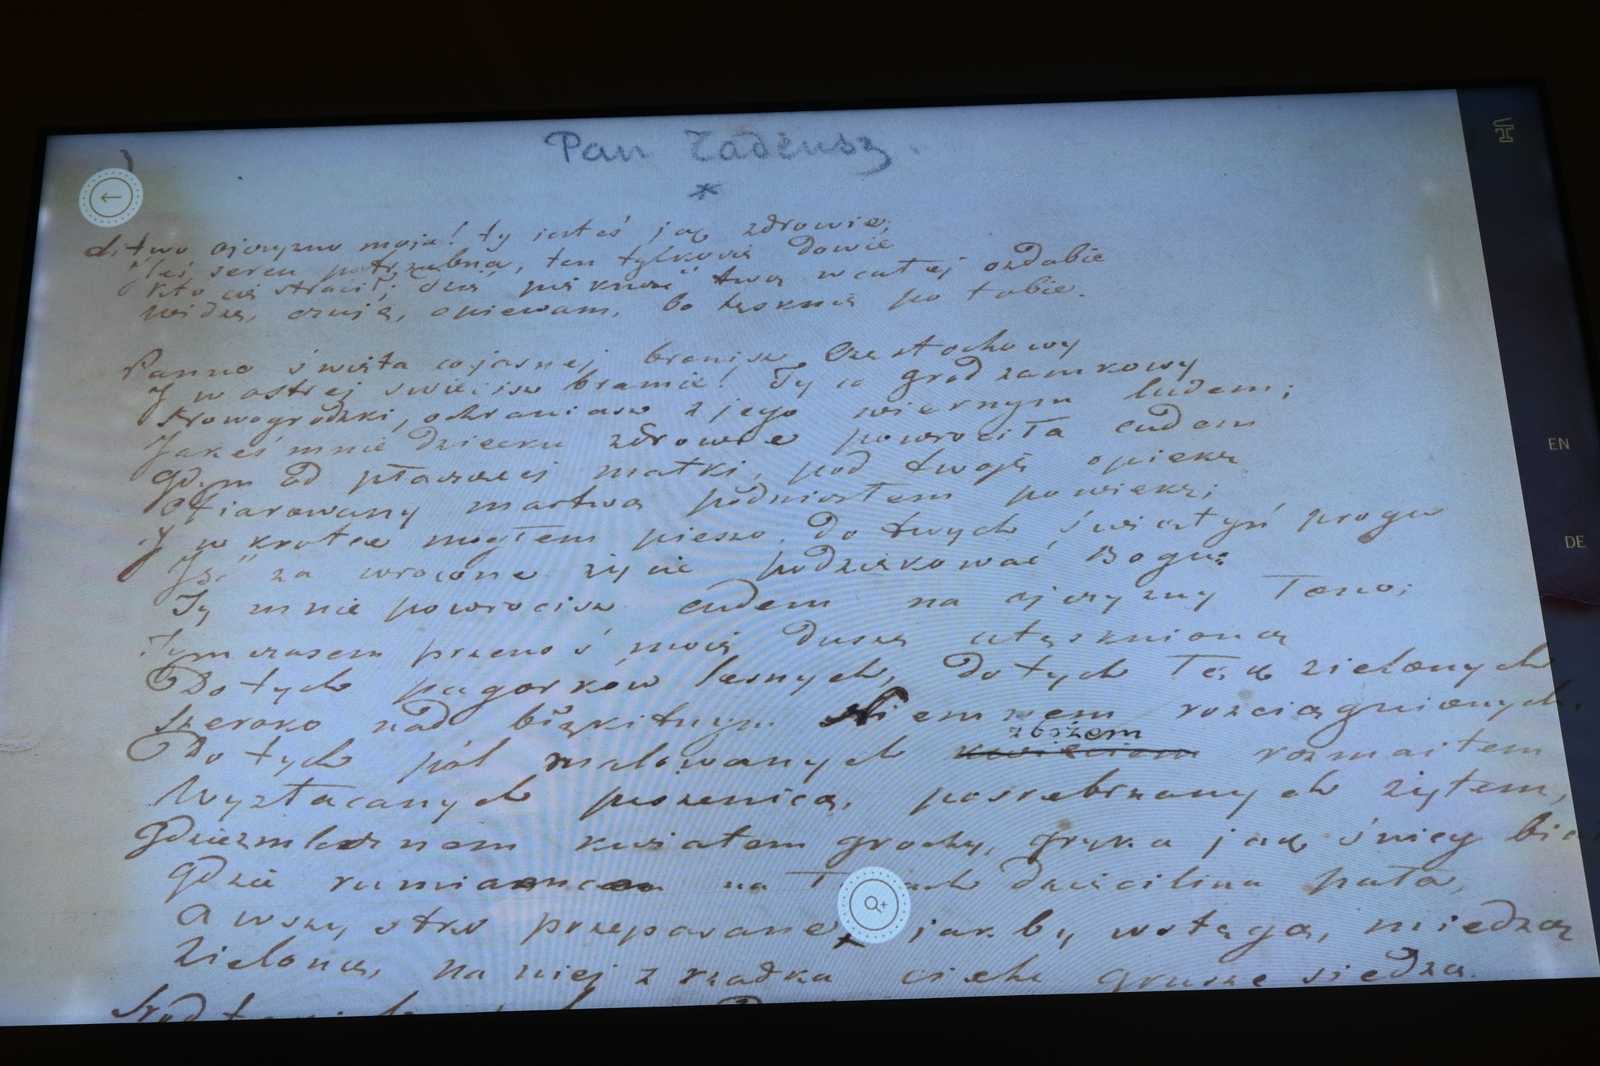 Pan Tadeusz.
*
Litwo ojczyzno moja! ty jesteś jak zdrowie;
sercu potrzebna, ten tylko się dowie
Kto cię stracił; dziś piękność twą w całej ozdobie
widzę, czuję, opiewam, bo tęsknię po tobie.
Panno święta co jasnej bronisz Częstochowy
I w ostrej świecisz bramie! Ty co gród zamkowy
Nowogrodzki, ochraniasz z jego wiernym ludem;
Jakeś mnie dziecku zdrowie powróciła cudem
Gdym od płaczącej matki, pod twoją opiekę
Ofiarowany martwą podniosłem powiekę;
I w krotce mogłem pieszo, do twych świątyń progu
Iść za wrócone życie podziękować Bogu:
Ty mnie powrocisz cudem na ojczyzny łono;
Tymczasem przenoś moją duszę utęsknioną
Do tych pagorków lesnych, do tych łąk zielonych
Szeroko nad błękitnym Niemnem rozciągnionych.
Do tych pól malowanych kwieciem zbożem rozmaitem
Wyzłacanych pszenicą, posrebrzanych żytem,
Gdzie kwiatem grochy, gryka jak śnieg
Gdzie na dzięcilina pała,
A wszystko przepasane, jakby wstęgą, miedzą
Zieloną, na niej z rzadka ciche grusze siedzą.
EN
DE